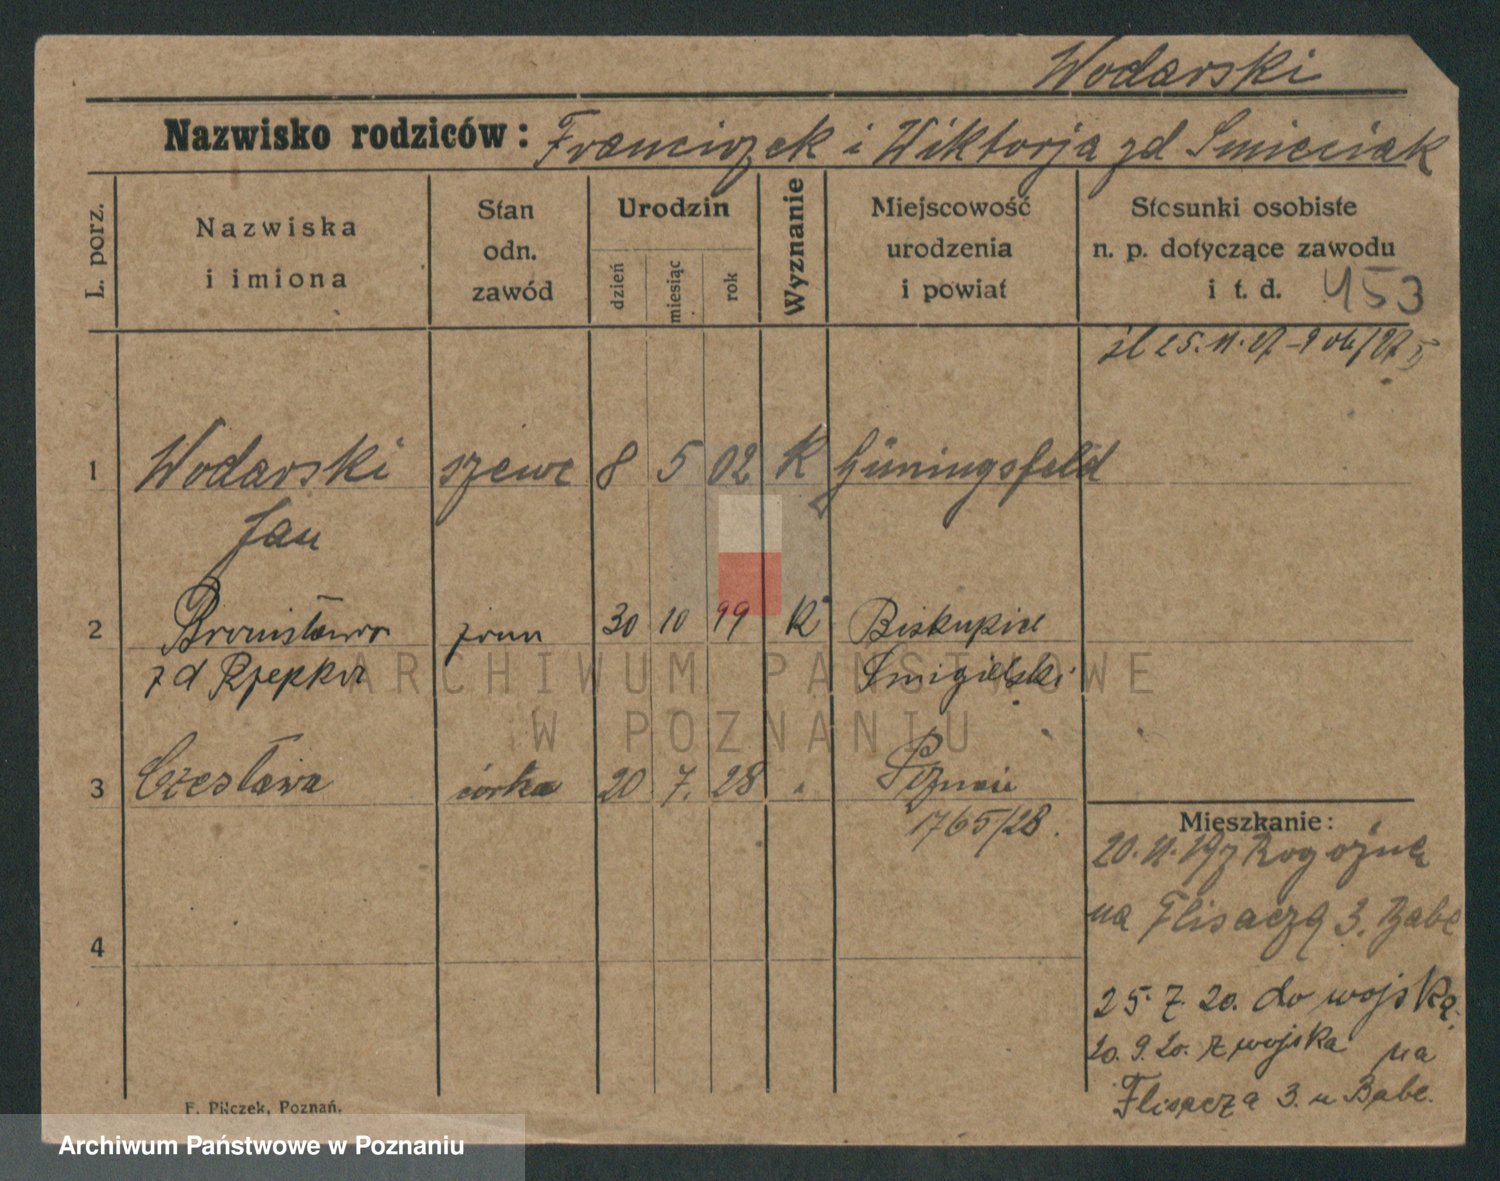 Wodarski
Nazwisko rodziców: Franciszek i Wiktorja zd Smieciak
L. porz.
Nazwiska
i imiona
Stan
odn.
zawód
Urodzin
dzień
miesiąc
rok
Wyznanie
Miejscowość
urodzenia
i powiat
Stosunki osobiste
n. p. dotyczące zawodu
i t. d. 453
25.11.27
1 Wodarski szewc 8 5 02 K Güningsfeld
Jan
2 Bronisława żona 30 10 99 K Biskupice
zd Rzepka Smigielski
3 Czesława córka 20 7. 28 Poznań
1765/28.
4
Mieszkanie:
20.11.19 z Rogoźna
na Flisacza 3. Babe
25.7.20. do wojska.
20.9.20. z wojska na
Flisacza 3. u Babe.
F. Pilczek, Poznań.
ARCHIWUM PAŃSTWOWE
W POZNANIU
Archiwum Państwowe w Poznaniu